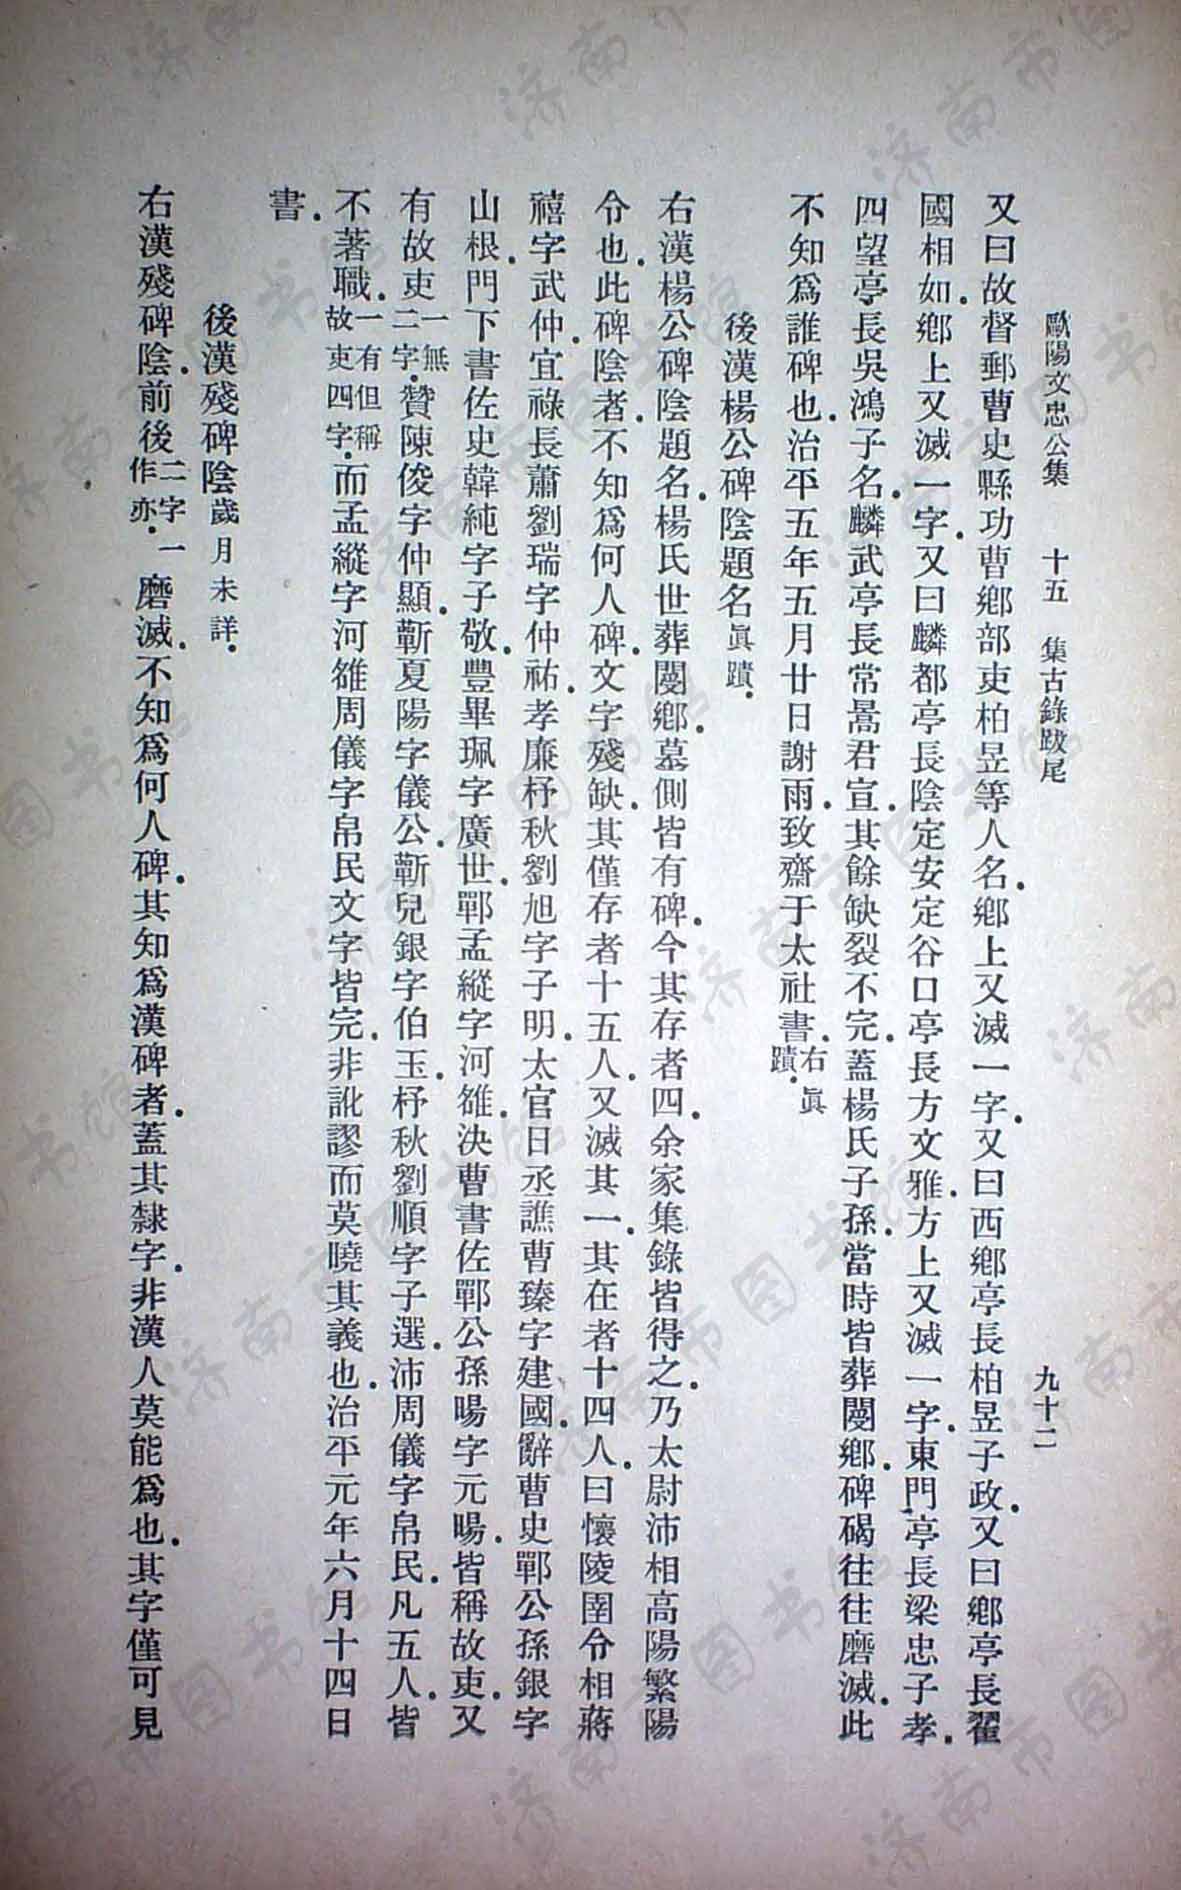 歐陽文忠公集　十五　集古錄跋尾　九十二
又曰故督郵曹史縣功曹鄉部吏柏昱等人名.鄉上又滅一字.又曰西鄉亭長柏昱子政.又曰鄉亭長翟
國相如.鄉上又滅一字.又曰麟都亭長陰定安定谷口亭長方文雅.方上又滅一字.東門亭長梁忠子孝.
四望亭長吳鴻子名.麟武亭長常暠君宣.其餘缺裂不完.蓋楊氏子孫.當時皆葬閿鄉.碑碣往往磨滅.此
不知爲誰碑也.治平五年五月廿日謝雨.致齋于太社書.右眞蹟.
後漢楊公碑陰題名眞蹟.
右漢楊公碑陰題名.楊氏世葬閿鄉.墓側皆有碑.今其存者四.余家集錄皆得之.乃太尉沛相高陽繁陽
令也.此碑陰者.不知爲何人碑.文字殘缺.其僅存者十五人.又滅其一.其在者十四人.曰懷陵圉令相蔣
禧字武仲.宜祿長蕭劉瑞字仲祐.孝廉杼秋劉旭字子明.太官日丞譙曹臻字建國.辭曹史鄲公孫銀字
山根.門下書佐史韓純字子敬.豐畢珮字廣世.鄲孟縱字河雒.決曹書佐鄲公孫暘字元暘.皆稱故吏.又
有故吏一無二字.贊陳俊字仲顯.蘄夏陽字儀公.蘄兒銀字伯玉.杼秋劉順字子選.沛周儀字帛民.凡五人.皆
不著職.一有但稱故吏四字.而孟縱字河雒周儀字帛民文字皆完.非訛謬而莫曉其義也.治平元年六月十四日
書.
後漢殘碑陰歲月未詳.
右漢殘碑陰.前後二字一作亦.磨滅.不知爲何人碑.其知爲漢碑者.蓋其隸字.非漢人莫能爲也.其字僅可見